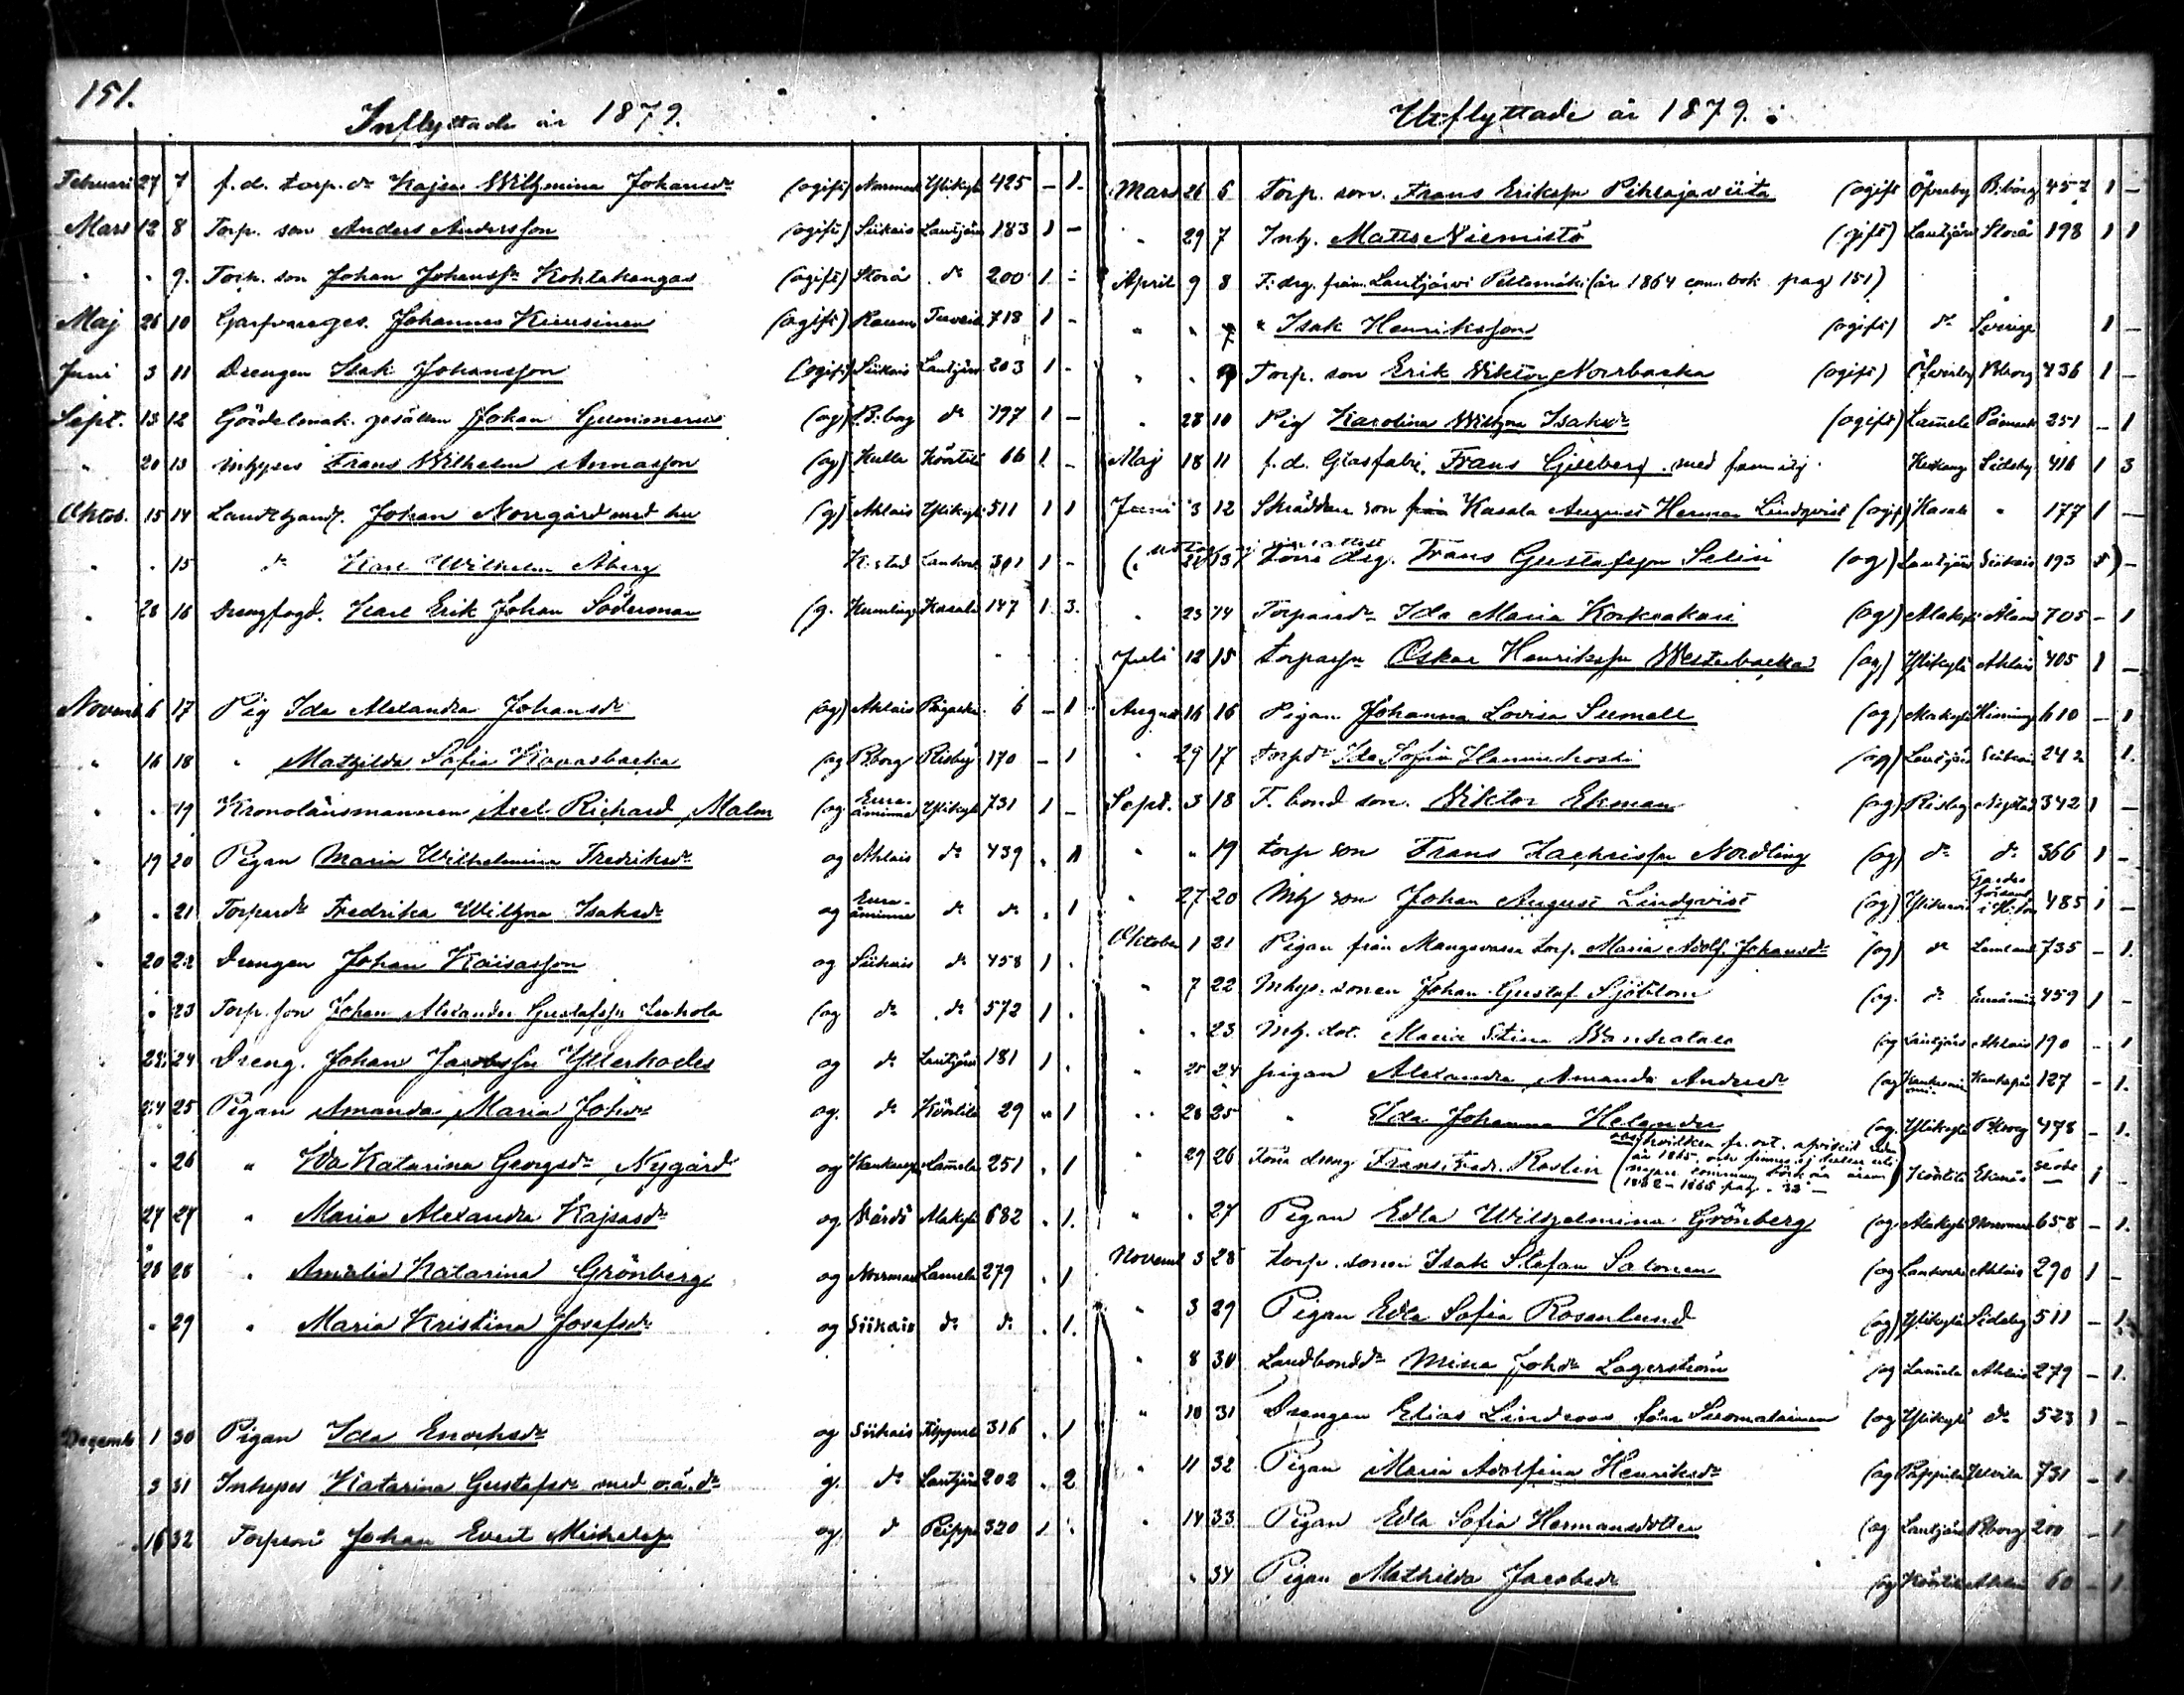 151.
Inflyttade år 1879.
Februari 27 7 f.d. torp. dr Kajsa Wilhmina Johansdr (ogift) Norrmark Ylikylä 425 - 1.
Mars 12 8 Torp. son Anders Andersson (ogift) Siikais Lautjärvi 183 1 -
" " 9. Torp. son Johan Johanss. Kohtakangas (ogift) Storå dr 200 1 -
Maj 26 10 Garfvareges. Johannes Kuusinen (ogift) Raumo 718 1 -
Juni 3 11 Drengen Isak Johansson (ogift) Siikais Lautjärv 203 1 -
Sept. 13 12 Gördelmak. gesällen Johan Gummerus (og) B:borg dr 197 1 -
" 20 13 Inhyses Frans Wilhelm Annasson (og) Kulla Körtilä 66 1 -
Oktob. 15 14 Landthandl. Johan Norrgård med hu (g) Ahlais Ylikylä 511 1 1
" " 15 dr Karl Wilhelm Åberg K:stad 301 1 -
" 28 16 Drengfogd. Karl Erik Johan Söderman (g. Kumlinge Kasala 147 1 3.
Novemb 6 17 Pig Ida Alexandra Johansdr (og) Ahlais 6 - 1
" 16 18 " Mathilda Sofia Kovasbacka (og B:borg Risby 170 - 1
" " 19 Kronolänsmannen Axel Richard Malm (og. Eura-åminne Ylikylä 731 1 -
" 19 20 Pigan Maria Wilhelmina Fredriksdr og Ahlais dr 439 . 1
" " 21 Torpardr Fredrika Wilhma Isaksdr og Eura-åminne dr dr . 1
" 20 22 Drengen Johan Kaisasson og Siikais dr 458 1 .
" 23 Torp. son Johan Alexander Gustafsson Leohola (og dr dr 572 1 .
23 24 Dreng. Johan Jacobsson Ytterhodes og dr Lautjärvi 181 1 .
24 25 Pigan Amanda Maria Johsdr og. dr Körtilä 29 " 1
" 26 " Ida Katarina Georgsdr Nygård og Lamela 251 . 1
27 27 " Maria Alexandra Kajsasdr og Vårdö Alakylä 682 . 1.
28 28 " Amalia Katarina Grönberg og Norrmark Lamela 279 . 1
" 29 " Maria Kristina Josefsdr og Siikais dr dr . 1.
Decemb 1 30 Pigan Ida Enochsdr og Siikais 316 . 1
3 31 Inhyses Katarina Gustafsdr med o.ä.dr g. dr Lautjärv 202 . 2
16 32 Torpson Johan Evert Michelsson og. d 320 1 .
Utflyttade år 1879.
Mars 26 6 Torp. son. Frans Eriksson Pihlajaviita (ogift Öfverby B:borg 452 1 -
" 29 7 Inh. Matts Niemistö (gift) Lautjärv Storå 198 1 1
April 9 8 F. drg. från Lautjärvi Peltomäki (år 1864 com. bok pag 151)
" " " Isak Henriksson (ogift) dr Sverige 1 -
" " 9 Torp. son Erik Viktor Norrbacka (ogift) Öfverby B:borg 436 1 -
" 28 10 Pig Karolina Wilhma Isaksdr (ogift) Lamela Påmark 251 - 1
Maj 18 11 f.d. Glasfabr. Frans Gjeeberg. med familj. Sideby 416 1 3
Juni 3 12 Skräddare son från Kasala August Herman Lindqvist (ogift) Kasala " 177 1 -
13 förre drg. Frans Gustafsson Selin (og) Lautjärv Siikais 193
" 23 14 Torparedr Ida Maria Korkeakari (og) Alakylä Åland 705 - 1
Juli 12 15 torparsn Oskar Henriksson Westerbacka (og) Ylikylä Ahlais 405 1 -
August 16 16 Pigan Johanna Lovisa Sumell (og) 610 - 1
" 29 17 torpdr Ida Sofia Hannukoski (og) Lautjär Siikais 242 1.
Sept. 3 18 F. bond son. Viktor Ekman (og) Risby Nystad 342 1 -
" " 19 torp son Frans Zachrisson Nordling (og) dr dr 366 1 -
" 27 20 Inh son Johan August Lindqvist (og) Ylikylä Gardes 485 1 -
Oktober 1 21 Pigan från Mangsvass torp. Maria Adolf. Johansdr (og) dr 735 - 1.
" 7 22 Inhys. sonen Johan Gustaf Sjöblom (og. dr 459 1 -
" " 23 Inh. dot. Maria Stina (og Lautjärv Ahlais 190 - 1
" 25 24 pigan Alexandra Amanda Andersdr (og 127 - 1.
" 28 25 " Ida Johanna Helander (og. Ylikylä B:borg 478 - 1.
29 26 förra dreng Frans Fredr. Roslin Körtilä Ekenäs 1 -
år 1865, och
1862-1865 pag. 33
" " 27 Pigan Edla Wilhelmina Grönberg (og. Alakylä Norrmark 658 - 1.
Novemb 3 28 torp. sonen Isak Stefan Salonen (og Ahlais 290 1 -
" 3 29 Pigan Edla Sofia Rosenlund (og) Ylikylä Sideby 511 - 1.
" 8 30 Landbonddr Mina Johdr Lagerström (og Lamela Ahlais 279 - 1.
" 10 31 Drengen Elias Lindroos förr Suomalainen (og Ylikylä dr 523 1 -
" 11 32 Pigan Maria Adolfina Henriksdr (og Ulvila 731 - 1
" 14 33 Pigan Edla Sofia Hermansdotter (og Lautjärv B:borg 200 - 1
" 34 Pigan Mathilda Jacobsdr (og Körtilä Ahlais 60 - 1